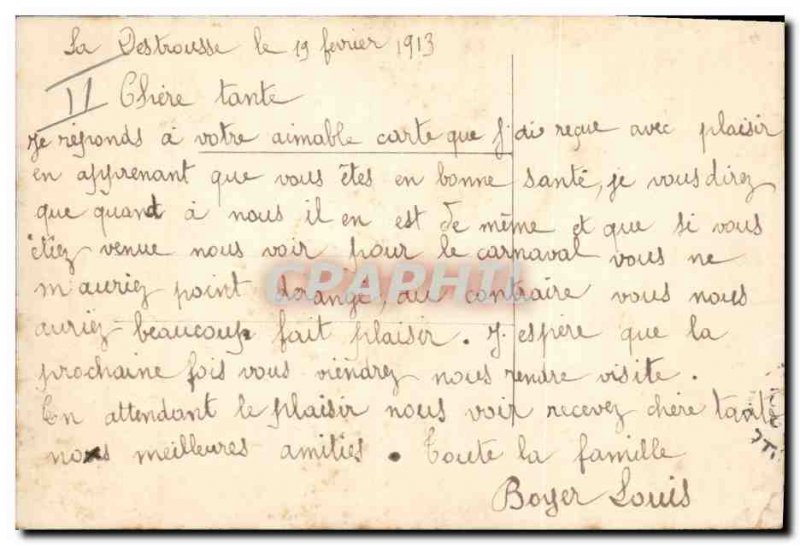 La Destrousse le 19 février 1913
11 Chère tante
Je réponds à votre aimable carte que j'ai reçue avec plaisir
en apprenant que vous êtes en bonne santé, je vous direz
que quand à nous il en est de même et que si vous
étiez venue nous voir pour le carnaval vous ne
m'auriez point dérangé, au contraire vous nous
auriez beaucoup fait plaisir. J'espère que la
prochaine fois vous viendrez nous rendre visite.
En attendant le plaisir nous voir recevez chère tante
nos meilleures amitiés. Toute la famille
Boyer Louis
CPAPHIL